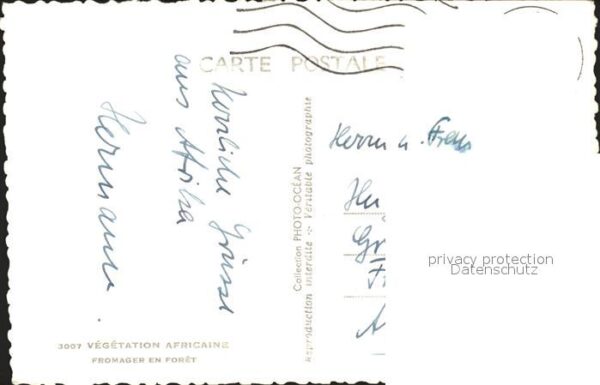 CARTE POSTALE
Herzliche Grüsse
aus Afrika
Hermann.
Collection PHOTO-OCÉAN
Reproduction interdite -:- Véritable photographie
Herrn u. Frau
privacy protection
Datenschutz
3007 VÉGÉTATION AFRICAINE
FROMAGER EN FORÊT